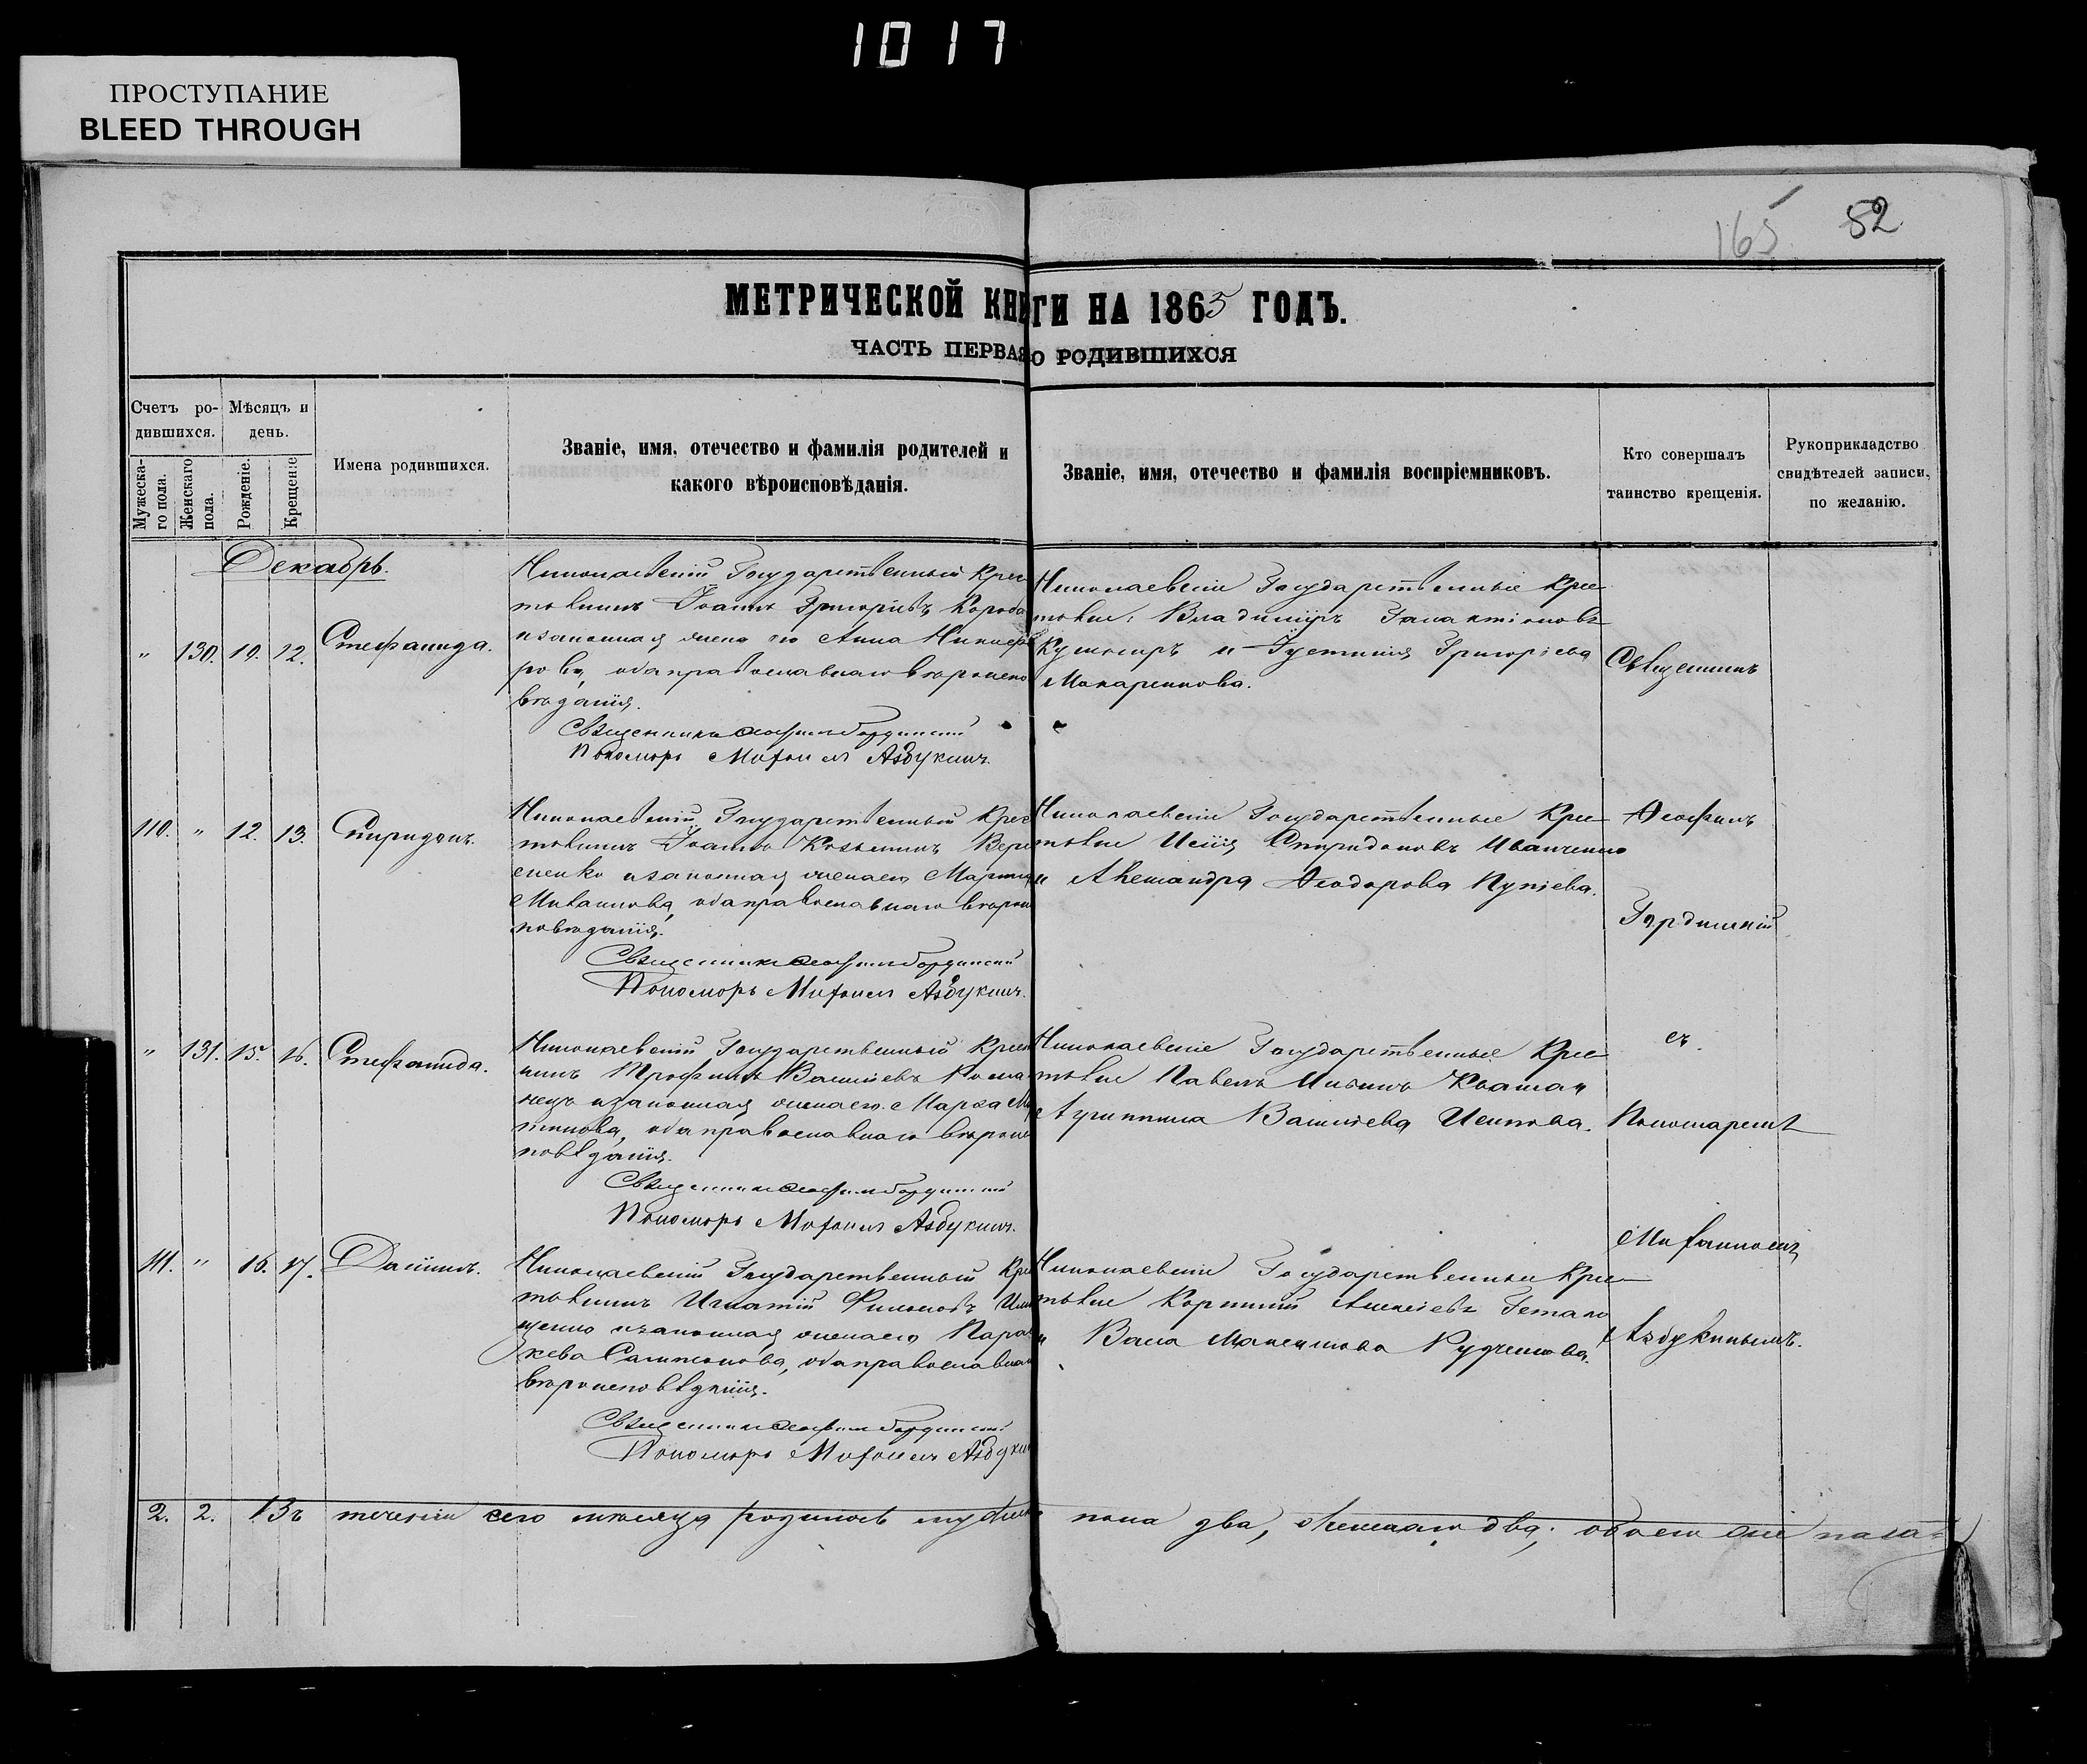 1017
ПРОСТУПАНИЕ
BLEED THROUGH
165 52
МЕТРИЧЕСКОЙ КНИГИ НА 1865 ГОДЪ.
ЧАСТЬ ПЕРВАЯ О РОДИВШИХСЯ
Счетъ ро-
дившихся.
Мужеска-
го пола.
Женскаго
пола.
Мѣсяцъ и
день.
Рожденіе.
Крещеніе
Имена родившихся.
Званіе, имя, отечество и фамилія родителей и
какого вѣроисповѣданія.
Званіе, имя, отечество и фамилія воспріемниковъ.
Кто совершалъ
таинство крещенія.
Рукоприкладство
свидѣтелей записи,
по желанію.
Декабрь.
" 130. 10. 12. Стефанида.
Николаевскій Государственный Крес
тьянинъ Іоаннъ Григорьевъ
и законная жена его Анна Никифо
рова, оба православнаго вѣроиспо
вѣданія.
Священникъ Ѳеофилъ Гордински
Пономарь Митрофанъ Азбукинъ.
Николаевскіе Государственные Крес
тьяне: Владиміръ Галактіоновъ
Кушниръ и Іустинія Григоріева
Макаренкова.
Священникъ
110. " 12. 13. Спиридонъ.
Николаевскій Государственный Крес
тьянинъ Іоаннъ Козьминъ
и законная жена его Марѳа
оба православнаго вѣроис
повѣданія.
Священникъ Ѳеофилъ Гордински
Пономарь Митрофанъ Азбукинъ.
Николаевскіе Государственные Крес
тьяне Исаія Спиридоновъ Иванченко
и Александра Ѳеодорова
Ѳеофилъ
Гординскій
" 131. 15. 16. Стефанида.
Николаевскій Государственный Кресть
нинъ Трофимъ Василіевъ
и законная жена его Марѳа
оба православнаго вѣроис
повѣданія.
Священникъ Ѳеофилъ Гордински
Пономарь Митрофанъ Азбукинъ.
Николаевскіе Государственные Крес
тьяне Павелъ Ильинъ Кваша и
Агриппина Василіева
съ
Пономаремъ
111. " 16. 17. Даніилъ.
Николаевскій Государственный Крес
тьянинъ Игнатій Филиповъ
и законная жена его Парас
кева Сампсонова, оба православнаго
вѣроисповѣданія.
Священникъ Ѳеофилъ Гордински
Пономарь Митрофанъ Азбукин
Николаевскіе Государственные Крес
тьяне Корнилій Алексіевъ Гетало
и Васса Максимова Рудченкова.
Митрофаномъ
Азбукинымъ.
2. 2. Въ теченіи сего мѣсяца родилось мужеска пола два, женскаго два; обоего